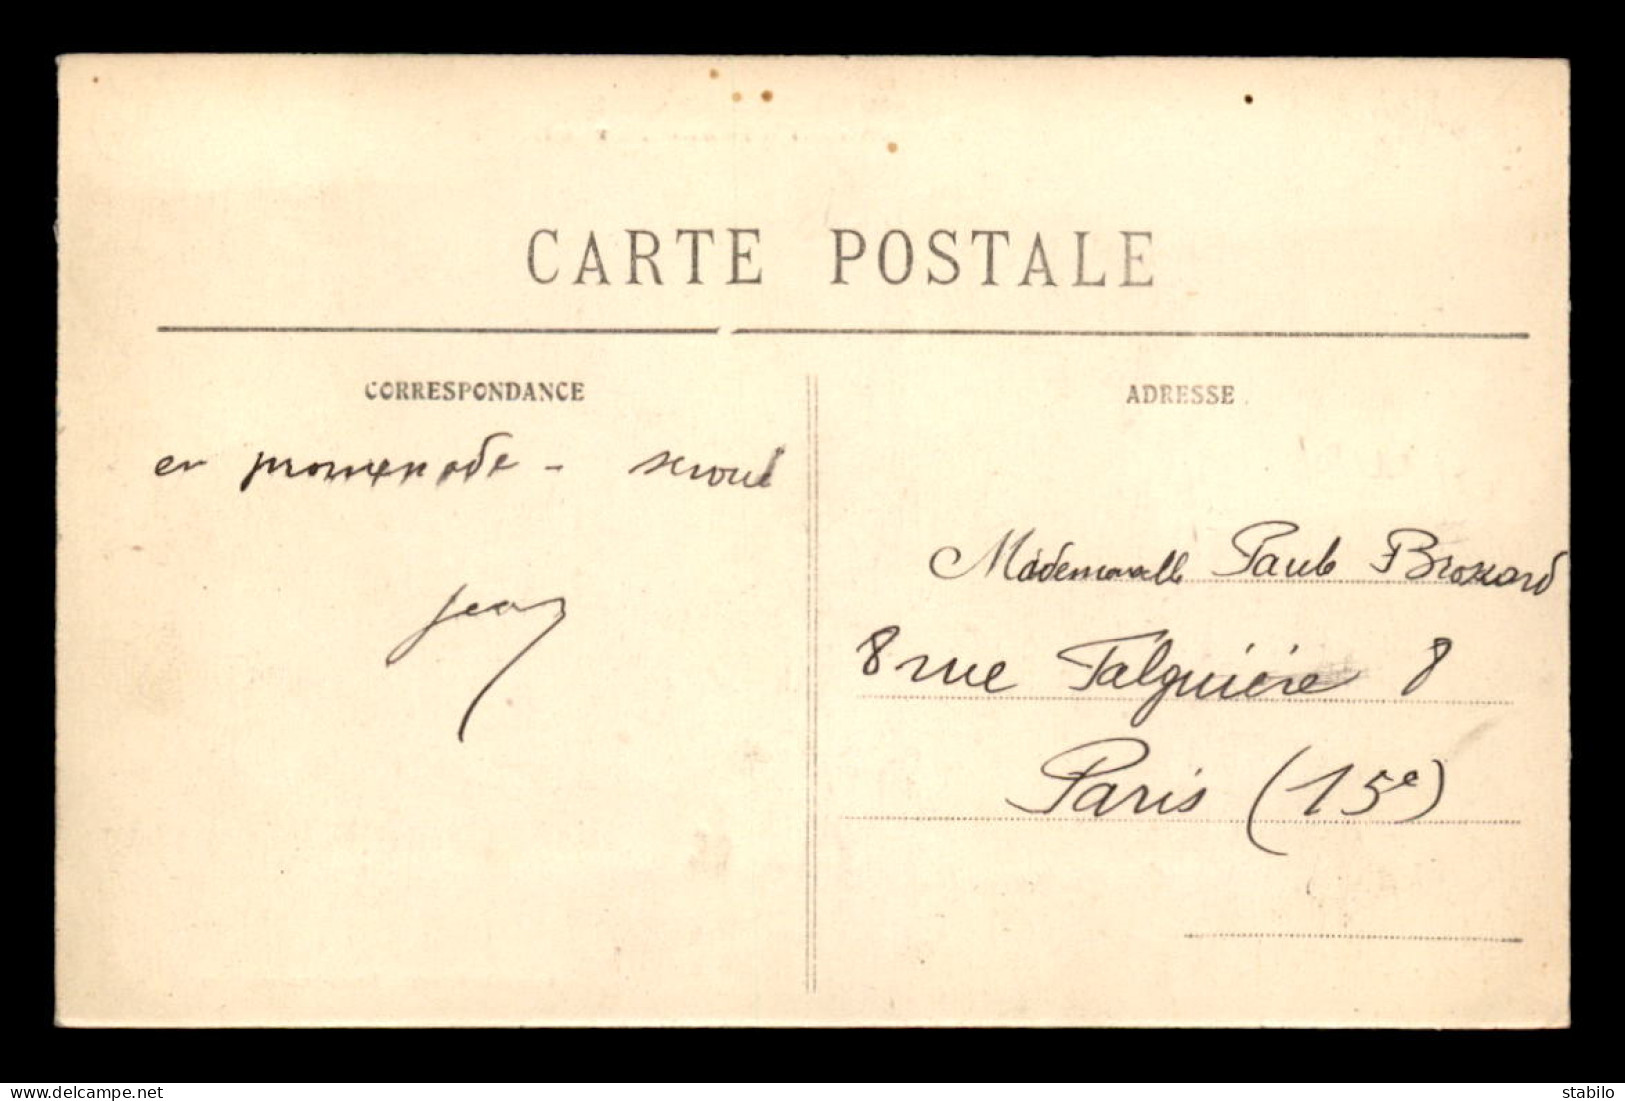 CARTE POSTALE
CORRESPONDANCE
en promenade -
Jean
ADRESSE
Mademoiselle Paule Brossard
8 rue Falguière 8
Paris (15e)
delcampe.net
stabilo